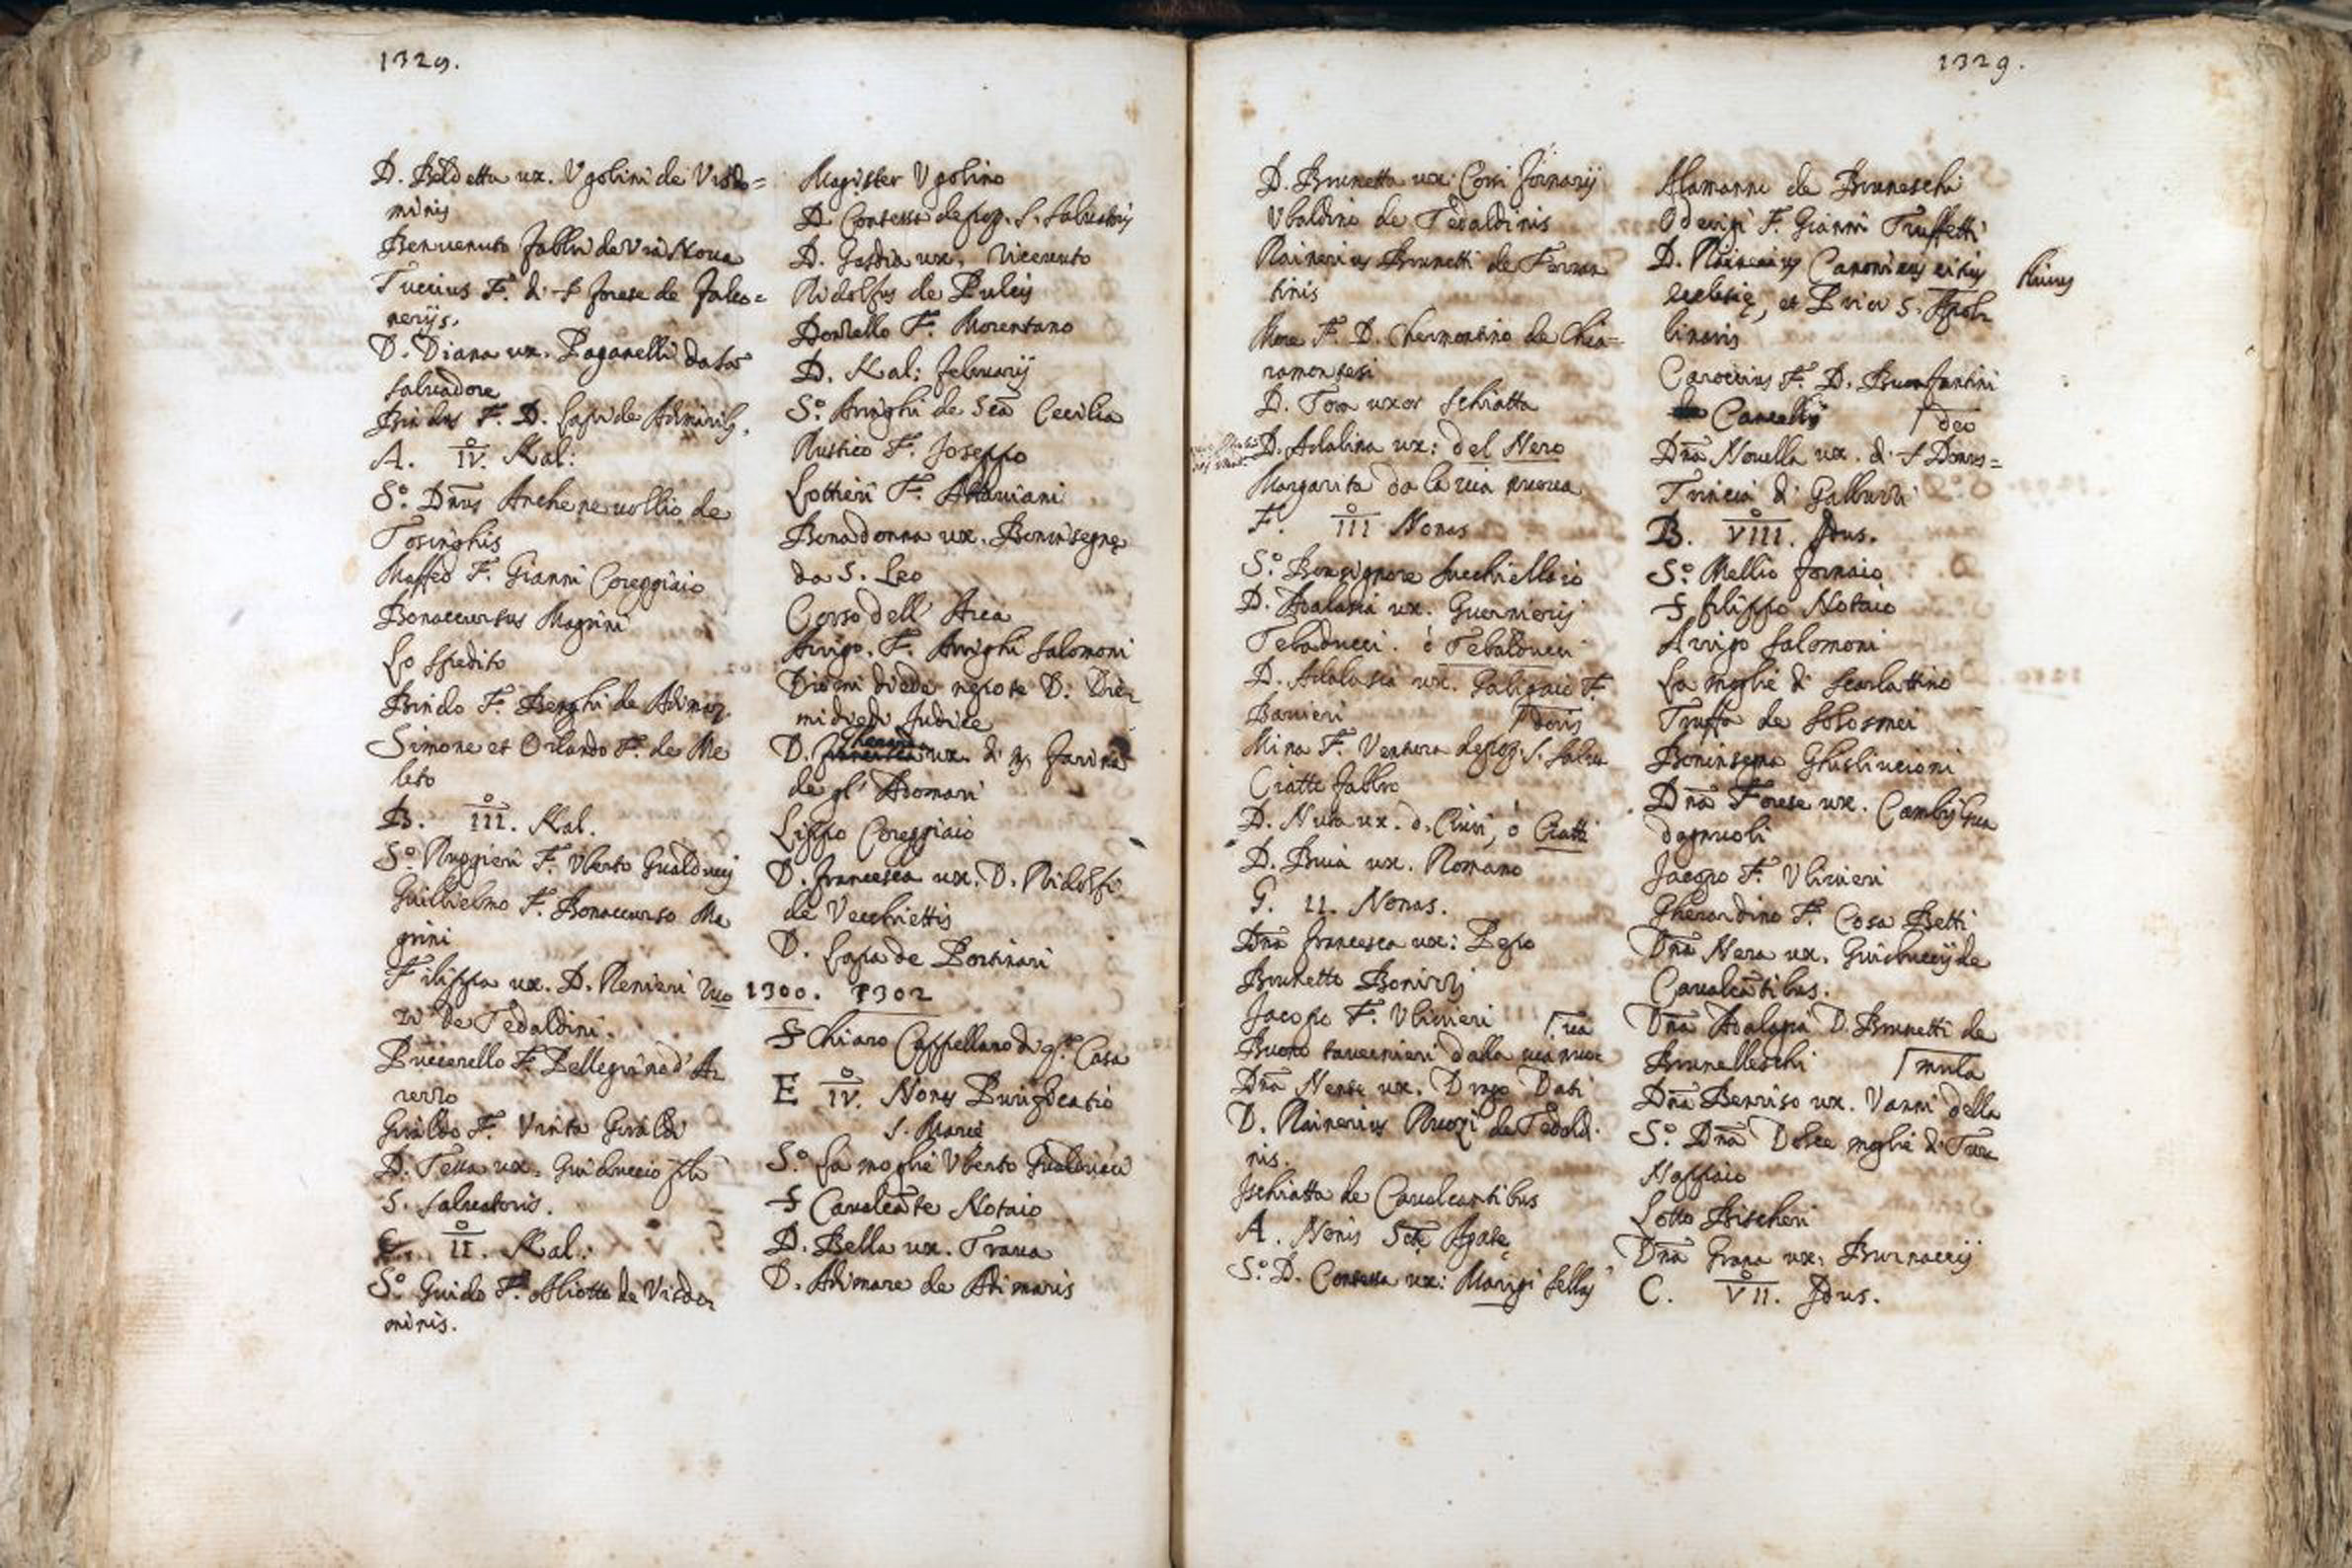 1329.
D. Beldetta ux. Ugolini de Visdo=
minis
Benvenuto Fabbri de Via Nova
Tuccius F. di S Forese de Falco=
nerijs.
D. Diana ux. Paganelli da Sa
Salvadore
Bindus F. D. Lapi de Adimaris.
A. IV. Kal:
S.º Dñus Anchenevollio de
Tosinghis
Maffeo F. Gianni Coreggiaio
Bonaccursus Magrini
Lo Spedito
Bindo F. Benghi de Adimar.
Simone et Orlando F. de Me
leto
B. III. Kal.
S.º Ruggieri F. Uberto Gualducij
Guillielmo F. Bonaccurso Ma
grini
Filippa ux. D. Renieri
de Tedaldini.
Puccerello F. Pellegrino d'Ar
rerro
Giraldo F. Vinta Giraldi
D. Tessa ux. Guiduccio
S. Salvatoris.
C. II. Kal:
S.º Guido F. Aliotto de Visdo
minis.
Magister Ugolino
D. Contessa de pop. S. Salvatoris
D. Gaddia ux. Vicevuto
Ridolfus de Pulcis
Donzello F. Morentano
D. Kal: Februarij
S.º Aringhi de Sca Cecilia
Rustico F. Joseppo
Lottieri F. Attaviani
Bonadonna ux. Boninsegne
da S. Leo
Corso dell' Arca
Arrigo. F. Arrighi Salomoni
Diomidiede nepote D. Dio
midiedi Judice
D. Gherarda ux. di M. Farina
de gl' Adomari
Lippo Coreggiaio
D. Francesca ux. D. Ridolfi
de Vecchiettis
D. Lapa de Portinari
1300. 1302
S Chiaro Cappellano di q.ª Casa
E IV. Nonas Purificatio
S. Marie
S.º La moglie Uberto Gualducci
S Cavalcāte Notaio
D. Bella ux. Trava
D. Adimare de Adimaris
1329.
D. Brunetta ux: Corsi Fornarij
Ubaldino de Tedaldinis
Rainerius Brunetti de Ferran
tinis
More F. D. Chermontino de Chia=
ramontesi
D. Tora uxor Schiatta
D. Adalina ux: del Nero
Margarita da la via nuova
F. III Nonas
S.º Bonsignore Succhiellaio
D. Adalasia ux. Guernierij
Tebaducci. ò Tebalducci
D. Adalasia ux. Galigaio F.
Banieri
doris
Mina F. Ventura de pop. S. Salva
Ciatto Fabbro
D. Nuta ux. d. Ciuti, ò Ciatti
D. Buia ux. Romano
G. II. Nonas.
Dña Francesca ux: Pepo
Brunetto Bonizzi
Jacopo F. Ulivieri
va
Buono tavernieri dalla via nuo=
Dña Nente ux. Dingo Dati
D. Rainerius Ruozi de Tedaldi.
nis.
Schiatta de Cavalcantibus
A. Nonis Scē Agate
S.º D. Contessa ux: Marigi Sellaj
Alamanni de Bruneschi
Oderigi F. Gianni Truffetti
D. Rainerius Canonicus eius
huius
Ecclesię, et Prior S. Apol
linaris
Caroccius F. D. Buonfantini
Cancellij
deo
Dña Novella ux. di S Donus=
Trincia di Galluzzi
B. VIII. Idus.
S.º Mellio Fornaio
S Filippo Notaio
Arrigo Salomoni
La moglie di Scarlattino
Truffa de Solosmei
Boninsegna Ghislincioni
Dña Forese ux. Cambij Gua
dagnuoli
Jacopo F. Ulivieri
Gherardino F. Cosa Betti
Dña Nera ux. Guiduccij de
Cavalcātibus.
Dña Adalagia D. Brunetti de
Brunelleschi
mula
Dña Benviso ux. Vanni della
S.º Dña Dolce moglie di Ture
Nappaio
Lotto Bischeri
Dña Grana ux: Burnaccij
C. VII. Idus.